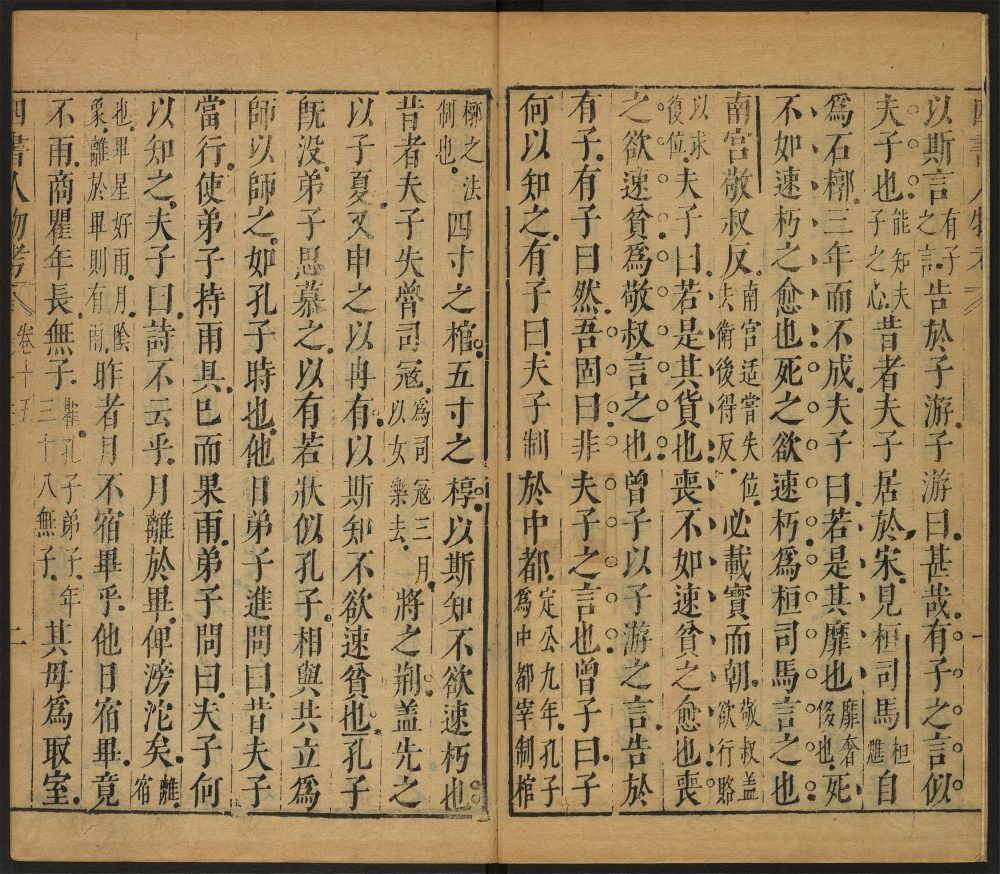 以斯言有子之言告於子游子游曰甚哉有子之言似
夫子也能知夫子之心昔者夫子居於宋見桓司馬桓魋自
爲石槨三年而不成夫子曰若是其靡也靡奢侈也死
不如速朽之愈也死之欲速朽爲桓司馬言之也
南宮敬叔反南宮适嘗失位去衛後得反必載寳而朝敬叔盖欲行賂
以求復位夫子曰若是其貨也喪不如速貧之愈也喪
之欲速貧爲敬叔言之也曾子以子游之言告於
有子有子曰然吾固曰非夫子之言也曾子曰子
何以知之有子曰夫子制於中都定公九年孔子爲中都宰制棺
槨之法制也四寸之棺五寸之椁以斯知不欲速朽也
昔者夫子失魯司冦爲司冦三月以女樂去將之荆盖先之
以子夏又申之以冉有以斯知不欲速貧也孔子
旣没弟子思慕之以有若狀似孔子相與共立爲
師以師之如孔子時也他日弟子進問曰昔夫子
當行使弟子持雨具已而果雨弟子問曰夫子何
以知之夫子曰詩不云乎月離於畢俾滂沱矣離宿
也畢星好雨月隂象離於畢則有雨昨者月不宿畢乎他日宿畢竟
不雨商瞿年長無子瞿孔子弟子年三十八無子其母爲取室
四書人物考
卷十五
二